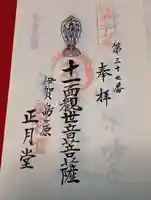 第三十七番
奉拝
十一面観世音菩薩
伊賀島ヶ原
正月堂